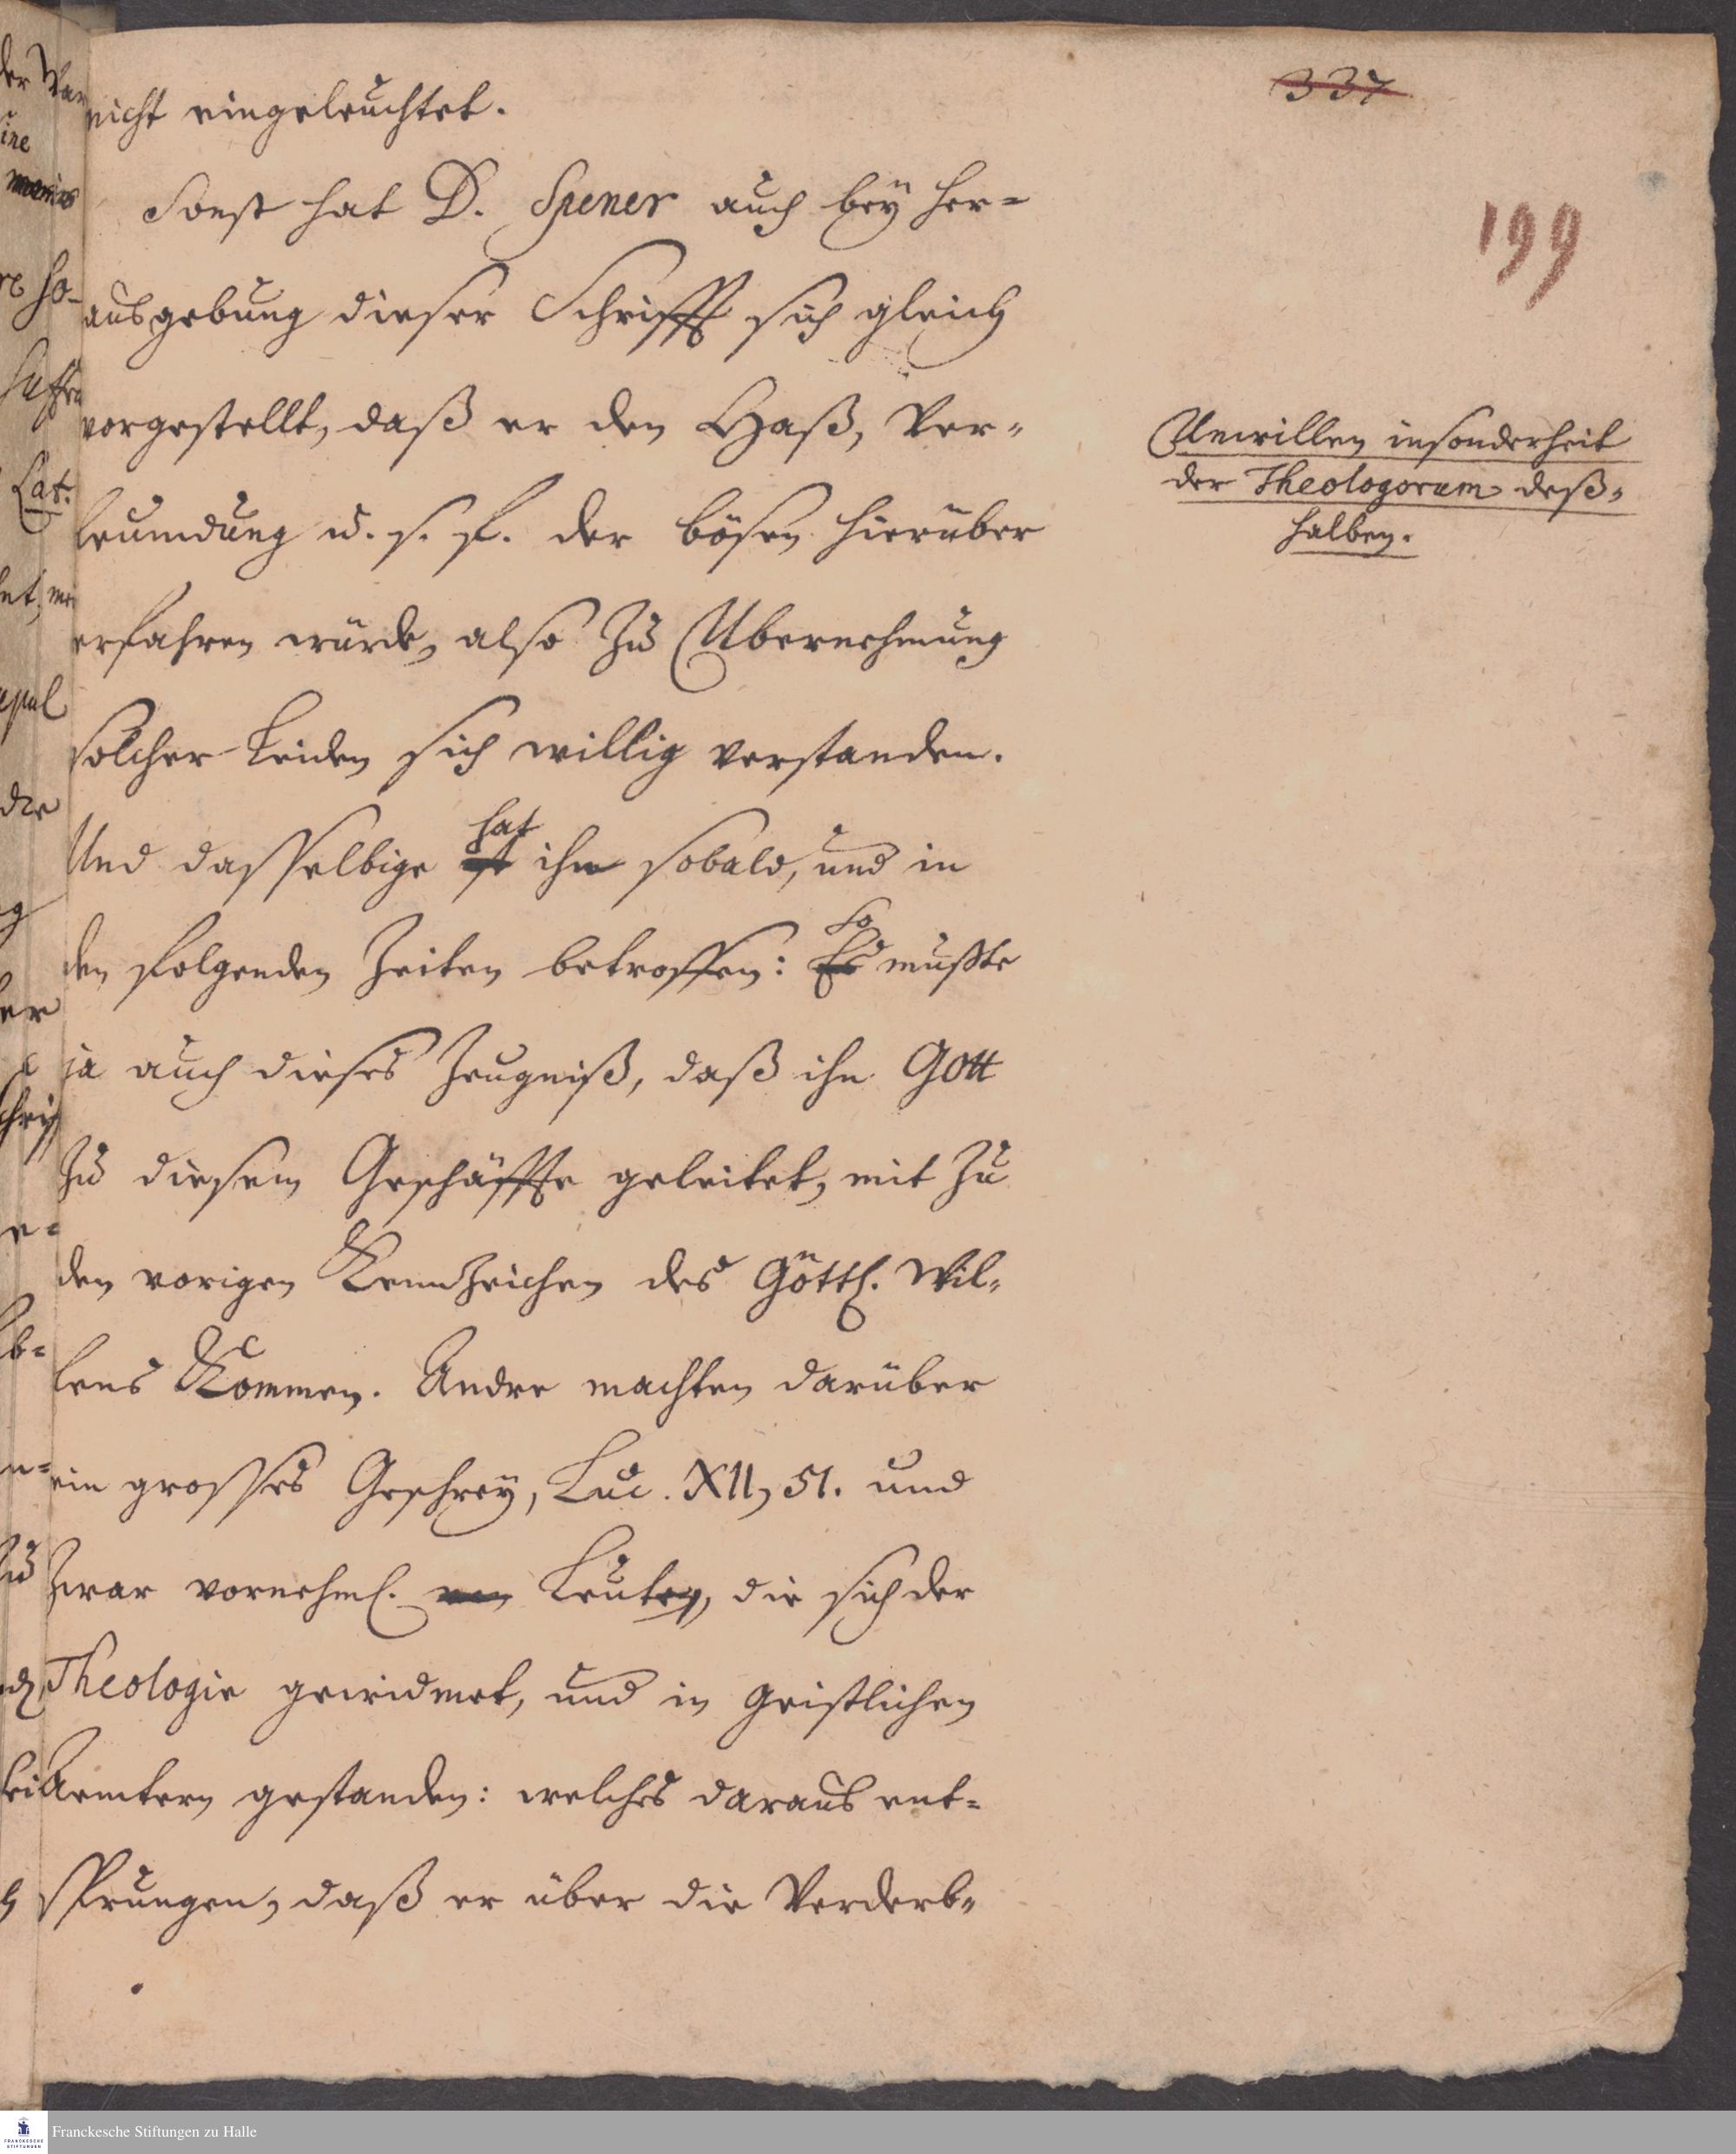 337
199
nicht eingeleuchtet.
Sonst hat D. Spener auch bey her=
ausgebung dieser Schrifft sich gleich
vorgestellt, daß er den Haß, Ver=
leumdung u. s. f. der bösen hierüber
erfahren würde, also zu Ubernehmung
solcher Leiden sich willig verstanden.
Und dasselbige hat ihn sobald, und in
den folgenden Zeiten betroffen: So mußte
ja auch dieses Zeugniß, daß ihn Gott
zu diesem Geschäffte geleitet, mit zu
den vorigen Kennzeichen des Göttl. Wil=
lens kommen. Andre machten darüber
ein grosses Geschrey, Luc. XII, 51. und
zwar vornehml. Leute, die sich der
Theologie gewidmet, und in geistlichen
Aemtern gestanden: welches daraus ent=
sprungen, daß er über die Verderb=
Unwillen insonderheit
der Theologorum deß=
halben.
Franckesche Stiftungen zu Halle